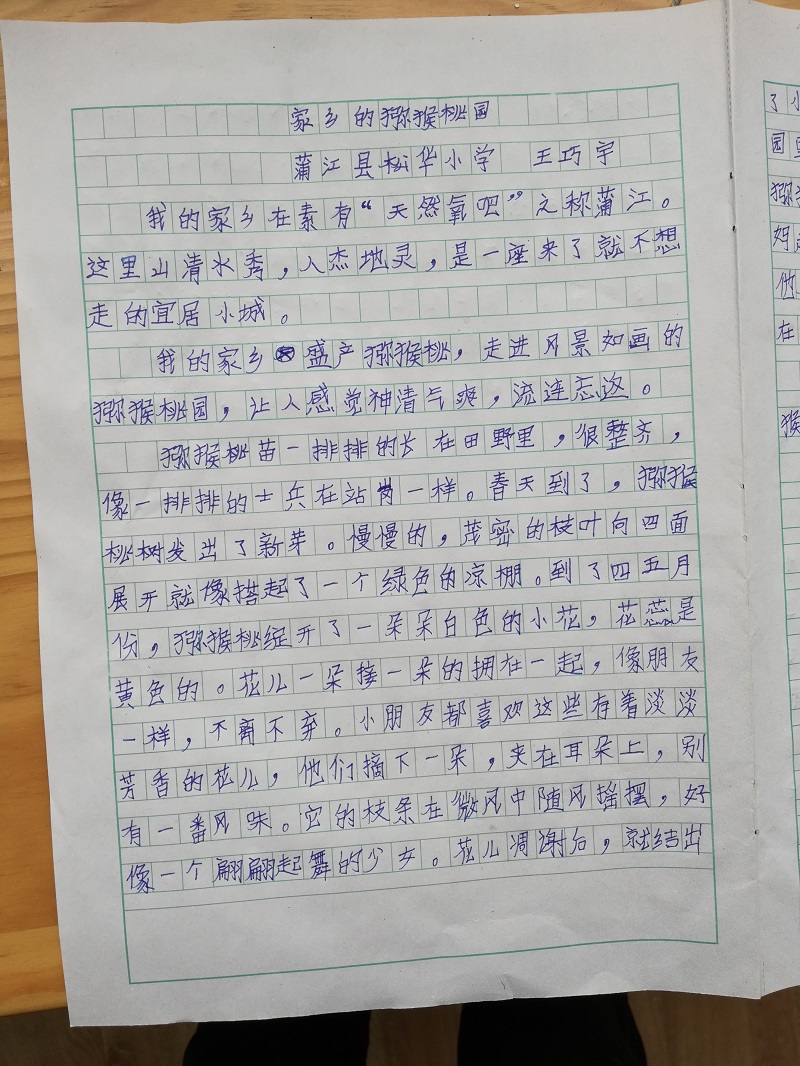 家乡的猕猴桃园
蒲江县松华小学 王巧宇
我的家乡在素有“天然氧吧”之称蒲江。
这里山清水秀，人杰地灵，是一座来了就不想
走的宜居小城。
我的家乡盛产猕猴桃，走进风景如画的
猕猴桃园，让人感觉神清气爽，流连忘返。
猕猴桃苗一排排的长在田野里，很整齐，
像一排排的士兵在站岗一样。春天到了，猕猴
桃树发出了新芽。慢慢的，茂密的枝叶向四面
展开就像搭起了一个绿色的凉棚。到了四五月
份，猕猴桃绽开了一朵朵白色的小花，花蕊是
黄色的。花儿一朵接一朵的拥在一起，像朋友
一样，不离不弃。小朋友都喜欢这些有着淡淡
芳香的花儿，他们摘下一朵，夹在耳朵上，别
有一番风味。它的枝条在微风中随风摇摆，好
像一个翩翩起舞的少女。花儿凋谢后，就结出
了小
园里
猕
他
在
猴